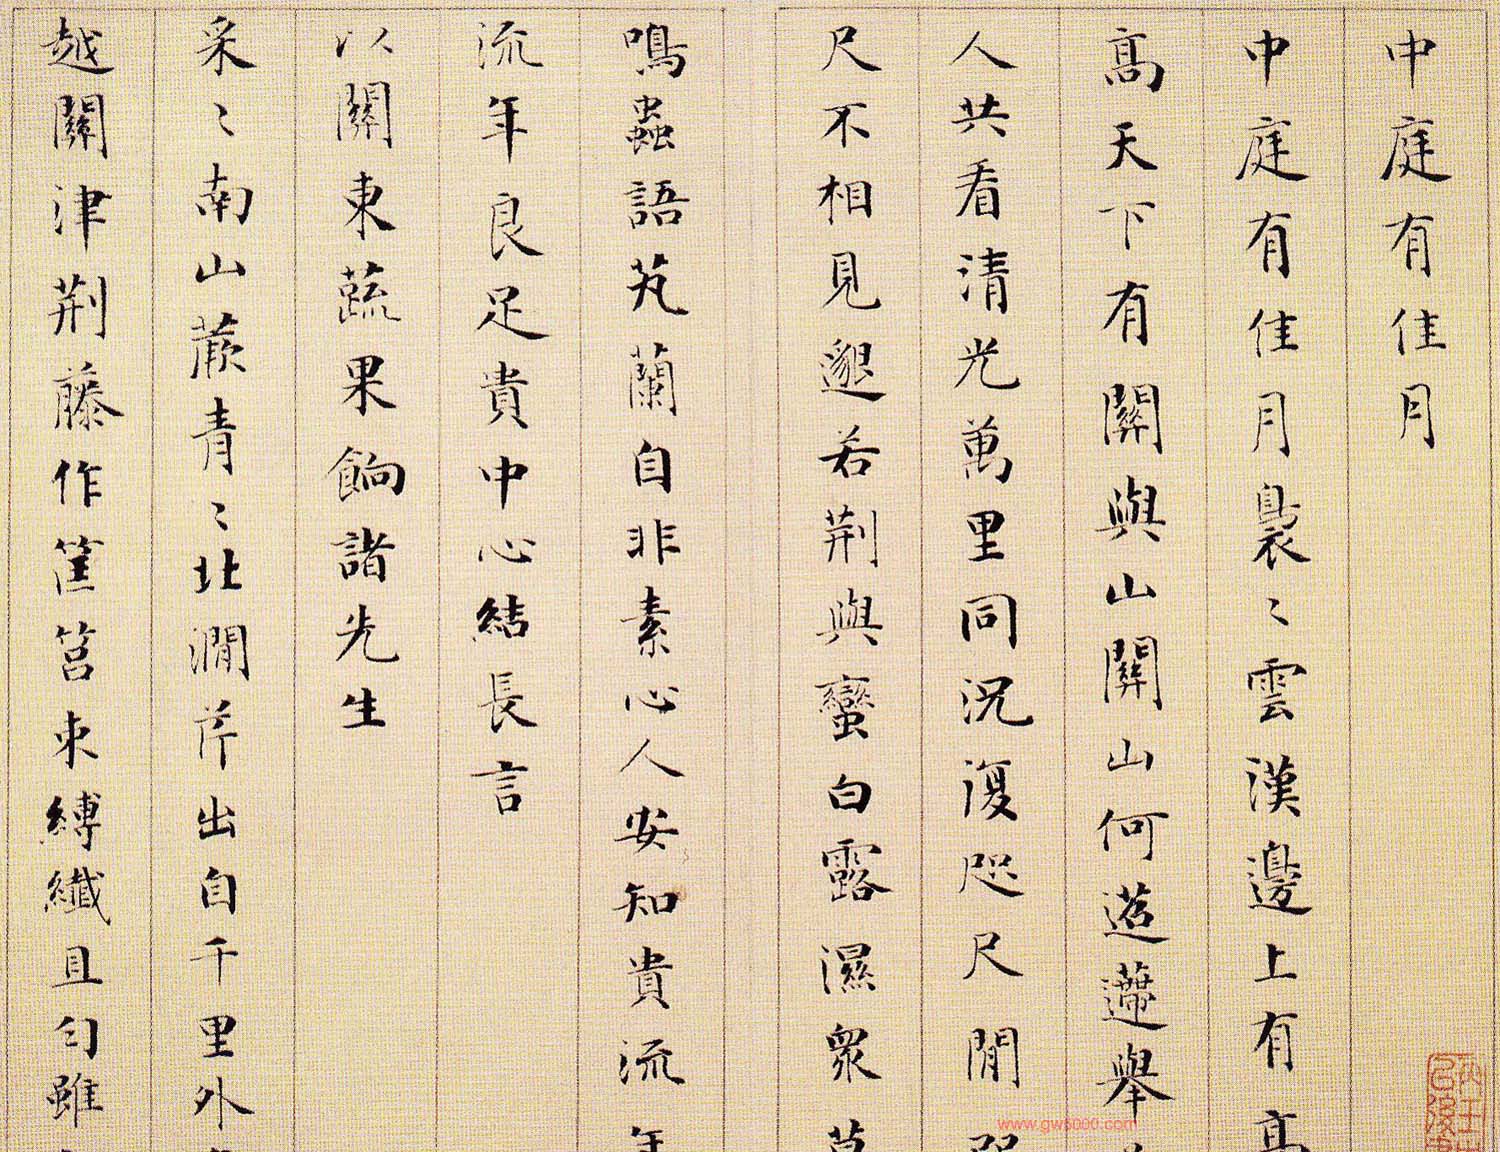 中庭有佳月
中庭有佳月裊〻雲漢邊上有高
高天下有關與山關山何迢遰舉
人共看清光萬里同況復咫尺間咫
尺不相見邈若荆與蠻白露濕衆草
鳴蟲語芄蘭自非素心人安知貴流年
流年良足貴中心結長言
以關東蔬果餉諸先生
采〻南山蕨青〻北澗芹出自千里外
越關津荆藤作筐筥束縛纖且勻雖
www.gw5000.com